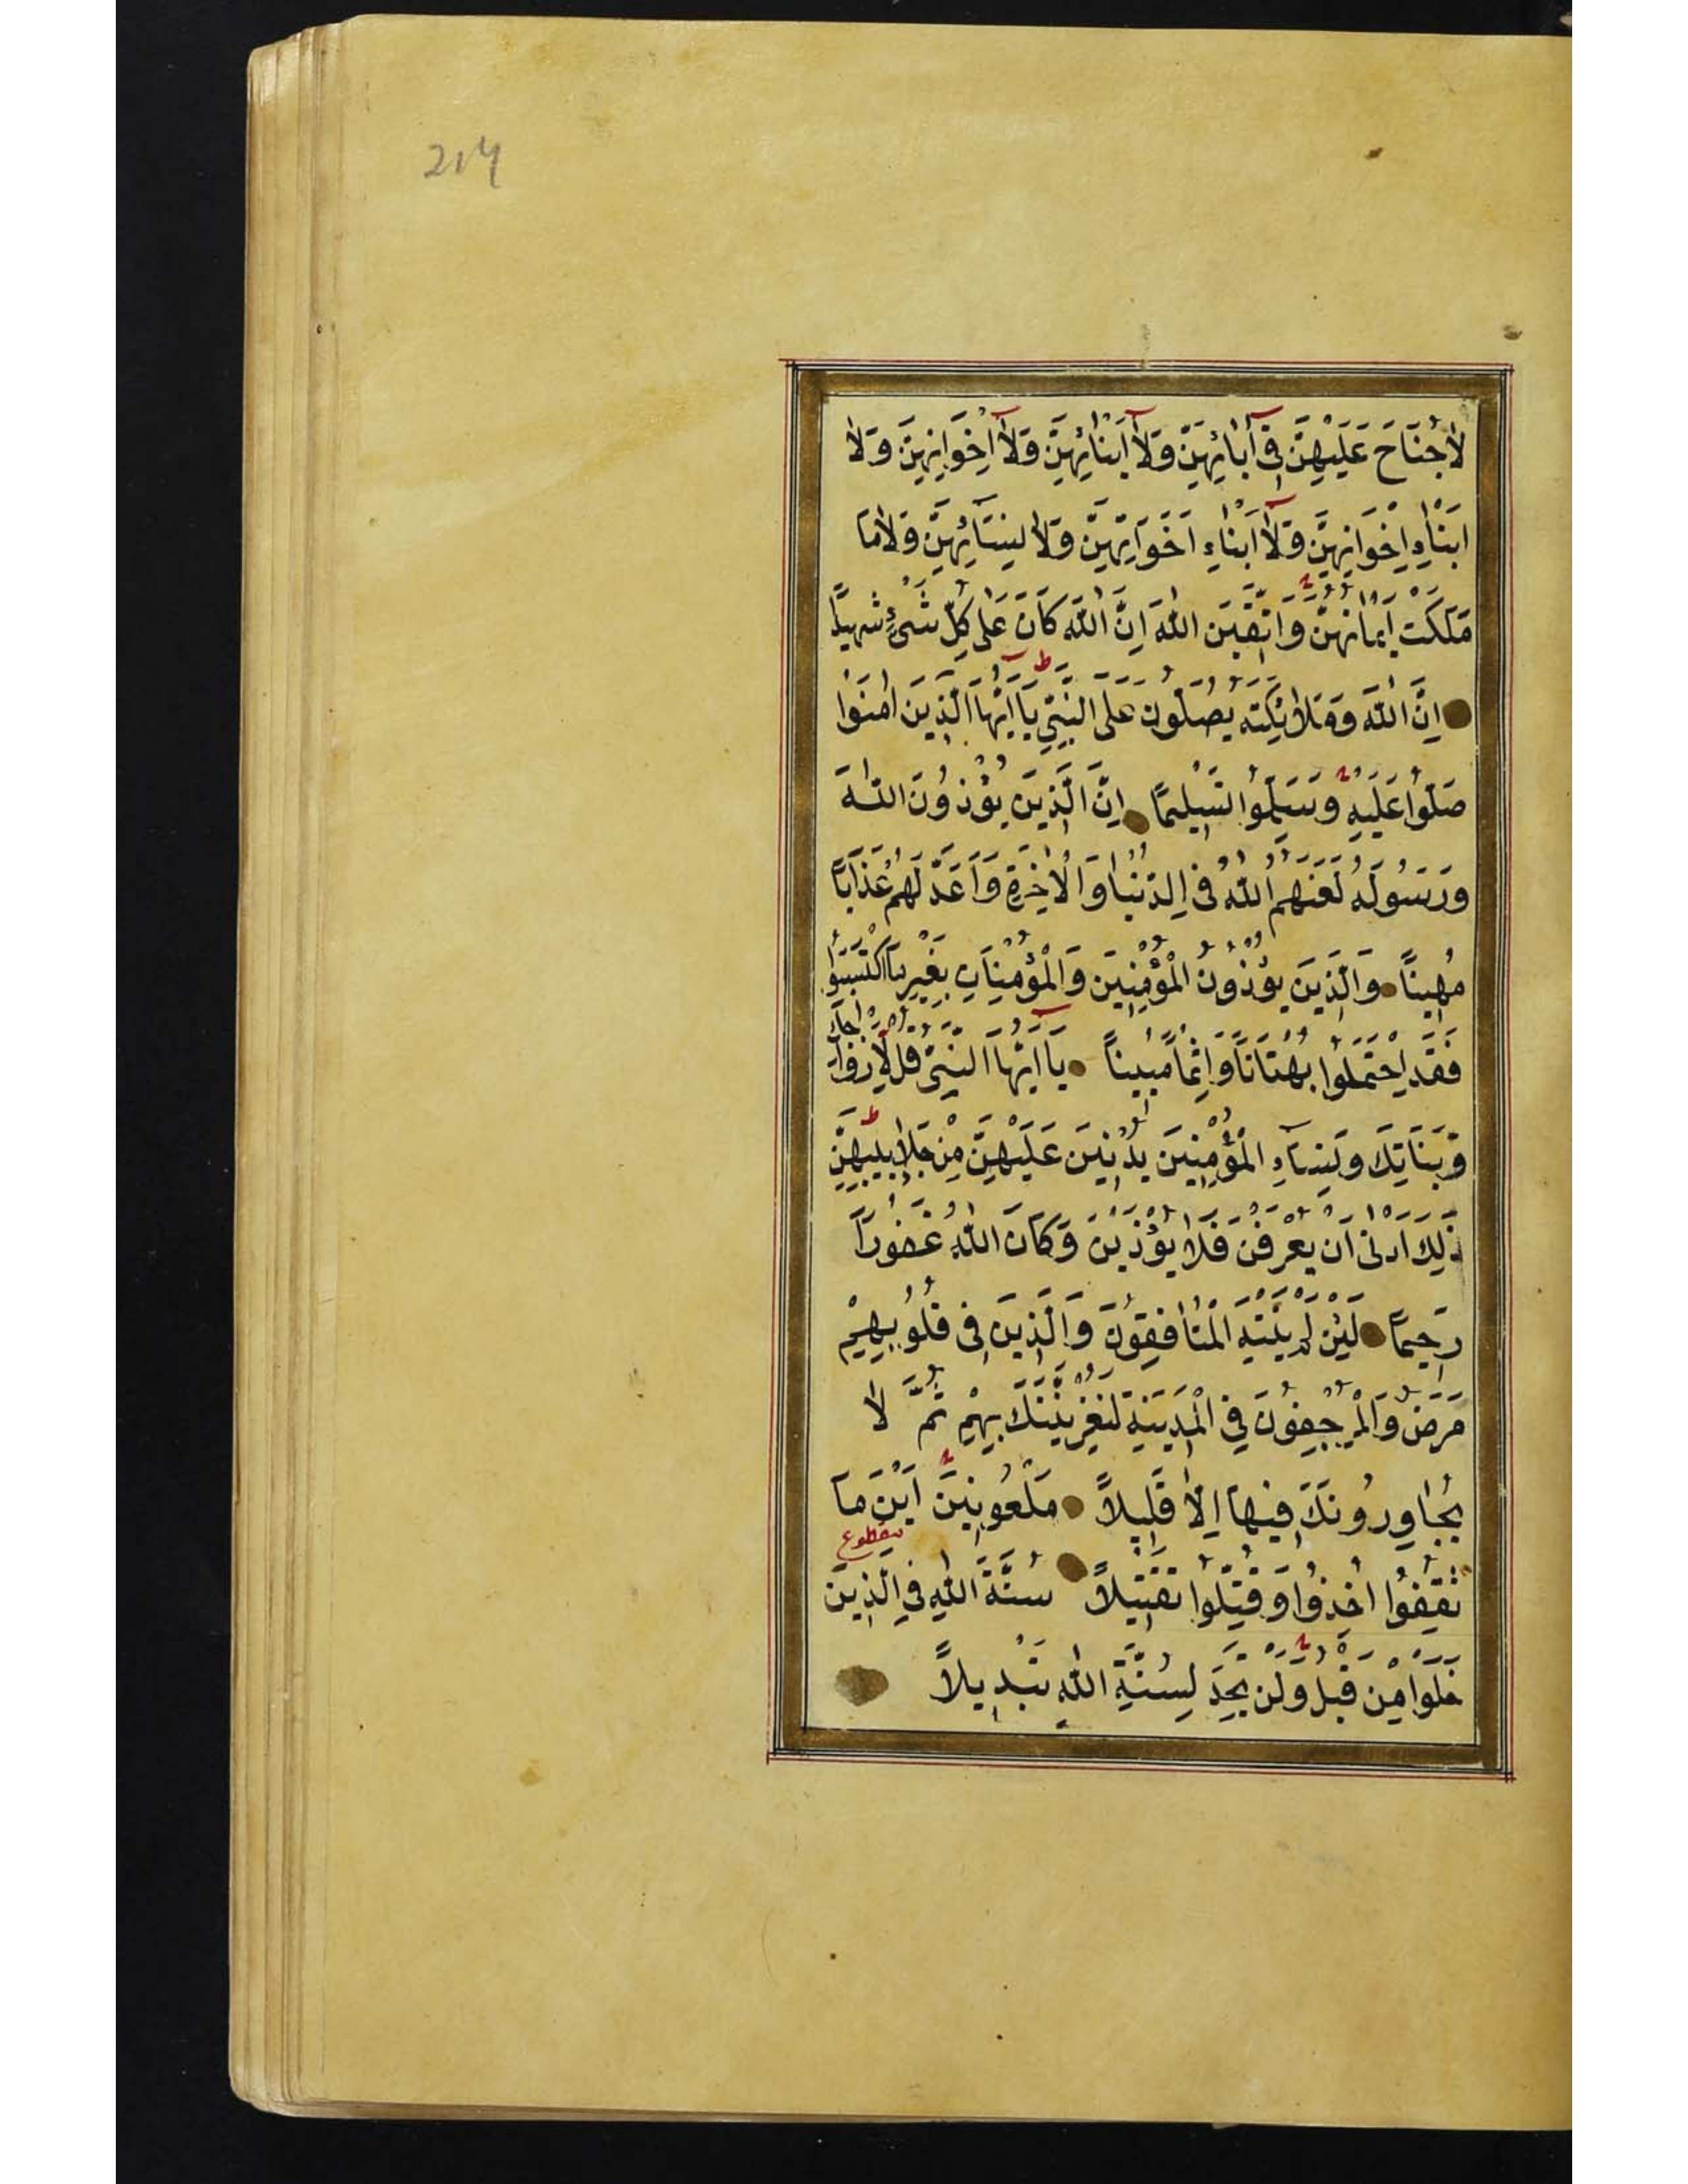 214
لَاجُنَاحَ عَلَيْهِنَّ فِى آٰبَائِهِنَّ وَلَآ اَبْنَائِهِنَّ وَلَآ اِخْوَانِهِنَّ وَلَا
اَبْنَاءِ اِخْوَانِهِنَّ وَلَآ اَبْنَاءِ اَخَوَاتِهِنَّ وَلَا نِسَآئِهِنَّ وَلَامَا
مَلَكَتْ اَيْمَانُهُنَّ وَاتَّقِينَ اللّٰهَ اِنَّ اللّٰهَ كَانَ عَلٰى كُلِّ شَىْءٍ شَهِيدًا
اِنَّ اللّٰهَ وَمَلَائِكَتَهُ يُصَلُّونَ عَلَى النَّبِيِّ ط يَآاَيُّهَا الَّذِينَ اٰمَنُوا
صَلُّوا عَلَيْهِ وَسَلِّمُوا تَسْلِيمًا اِنَّ الَّذِينَ يُؤْذُونَ اللّٰهَ
وَرَسُولَهُ لَعَنَهُمُ اللّٰهُ فِى الدُّنْيَا وَالْاٰخِرَةِ وَاَعَدَّ لَهُمْ عَذَابًا
مُهِينًا وَالَّذِينَ يُؤْذُونَ الْمُؤْمِنِينَ وَالْمُؤْمِنَاتِ بِغَيْرِ مَا اكْتَسَبُوا
فَقَدِ احْتَمَلُوا بُهْتَانًا وَاِثْمًا مُبِينًا يَآاَيُّهَا النَّبِىُّ قُل لِاَزْوَاجِكَ
وَبَنَاتِكَ وَنِسَآءِ الْمُؤْمِنِينَ يُدْنِينَ عَلَيْهِنَّ مِنْ جَلَابِيبِهِنَّ ط
ذٰلِكَ اَدْنٰى اَنْ يُعْرَفْنَ فَلَا يُؤْذَيْنَ وَكَانَ اللّٰهُ غَفُورًا
رَحِيمًا لَئِنْ لَمْ يَنْتَهِ الْمُنَافِقُونَ وَالَّذِينَ فِى قُلُوبِهِمْ
مَرَضٌ وَالْمُرْجِفُونَ فِي الْمَدِينَةِ لَنُغْرِيَنَّكَ بِهِمْ ثُمَّ لَا
يُجَاوِرُونَكَ فِيهَا اِلَّا قَلِيلًا مَلْعُونِينَ اَيْنَ مَا
مقطوع
ثُقِفُوا اُخِذُوا وَقُتِّلُوا تَقْتِيلًا سُنَّةَ اللّٰهِ فِي الَّذِينَ
خَلَوْا مِنْ قَبْلُ وَلَنْ تَجِدَ لِسُنَّةِ اللّٰهِ تَبْدِيلًا